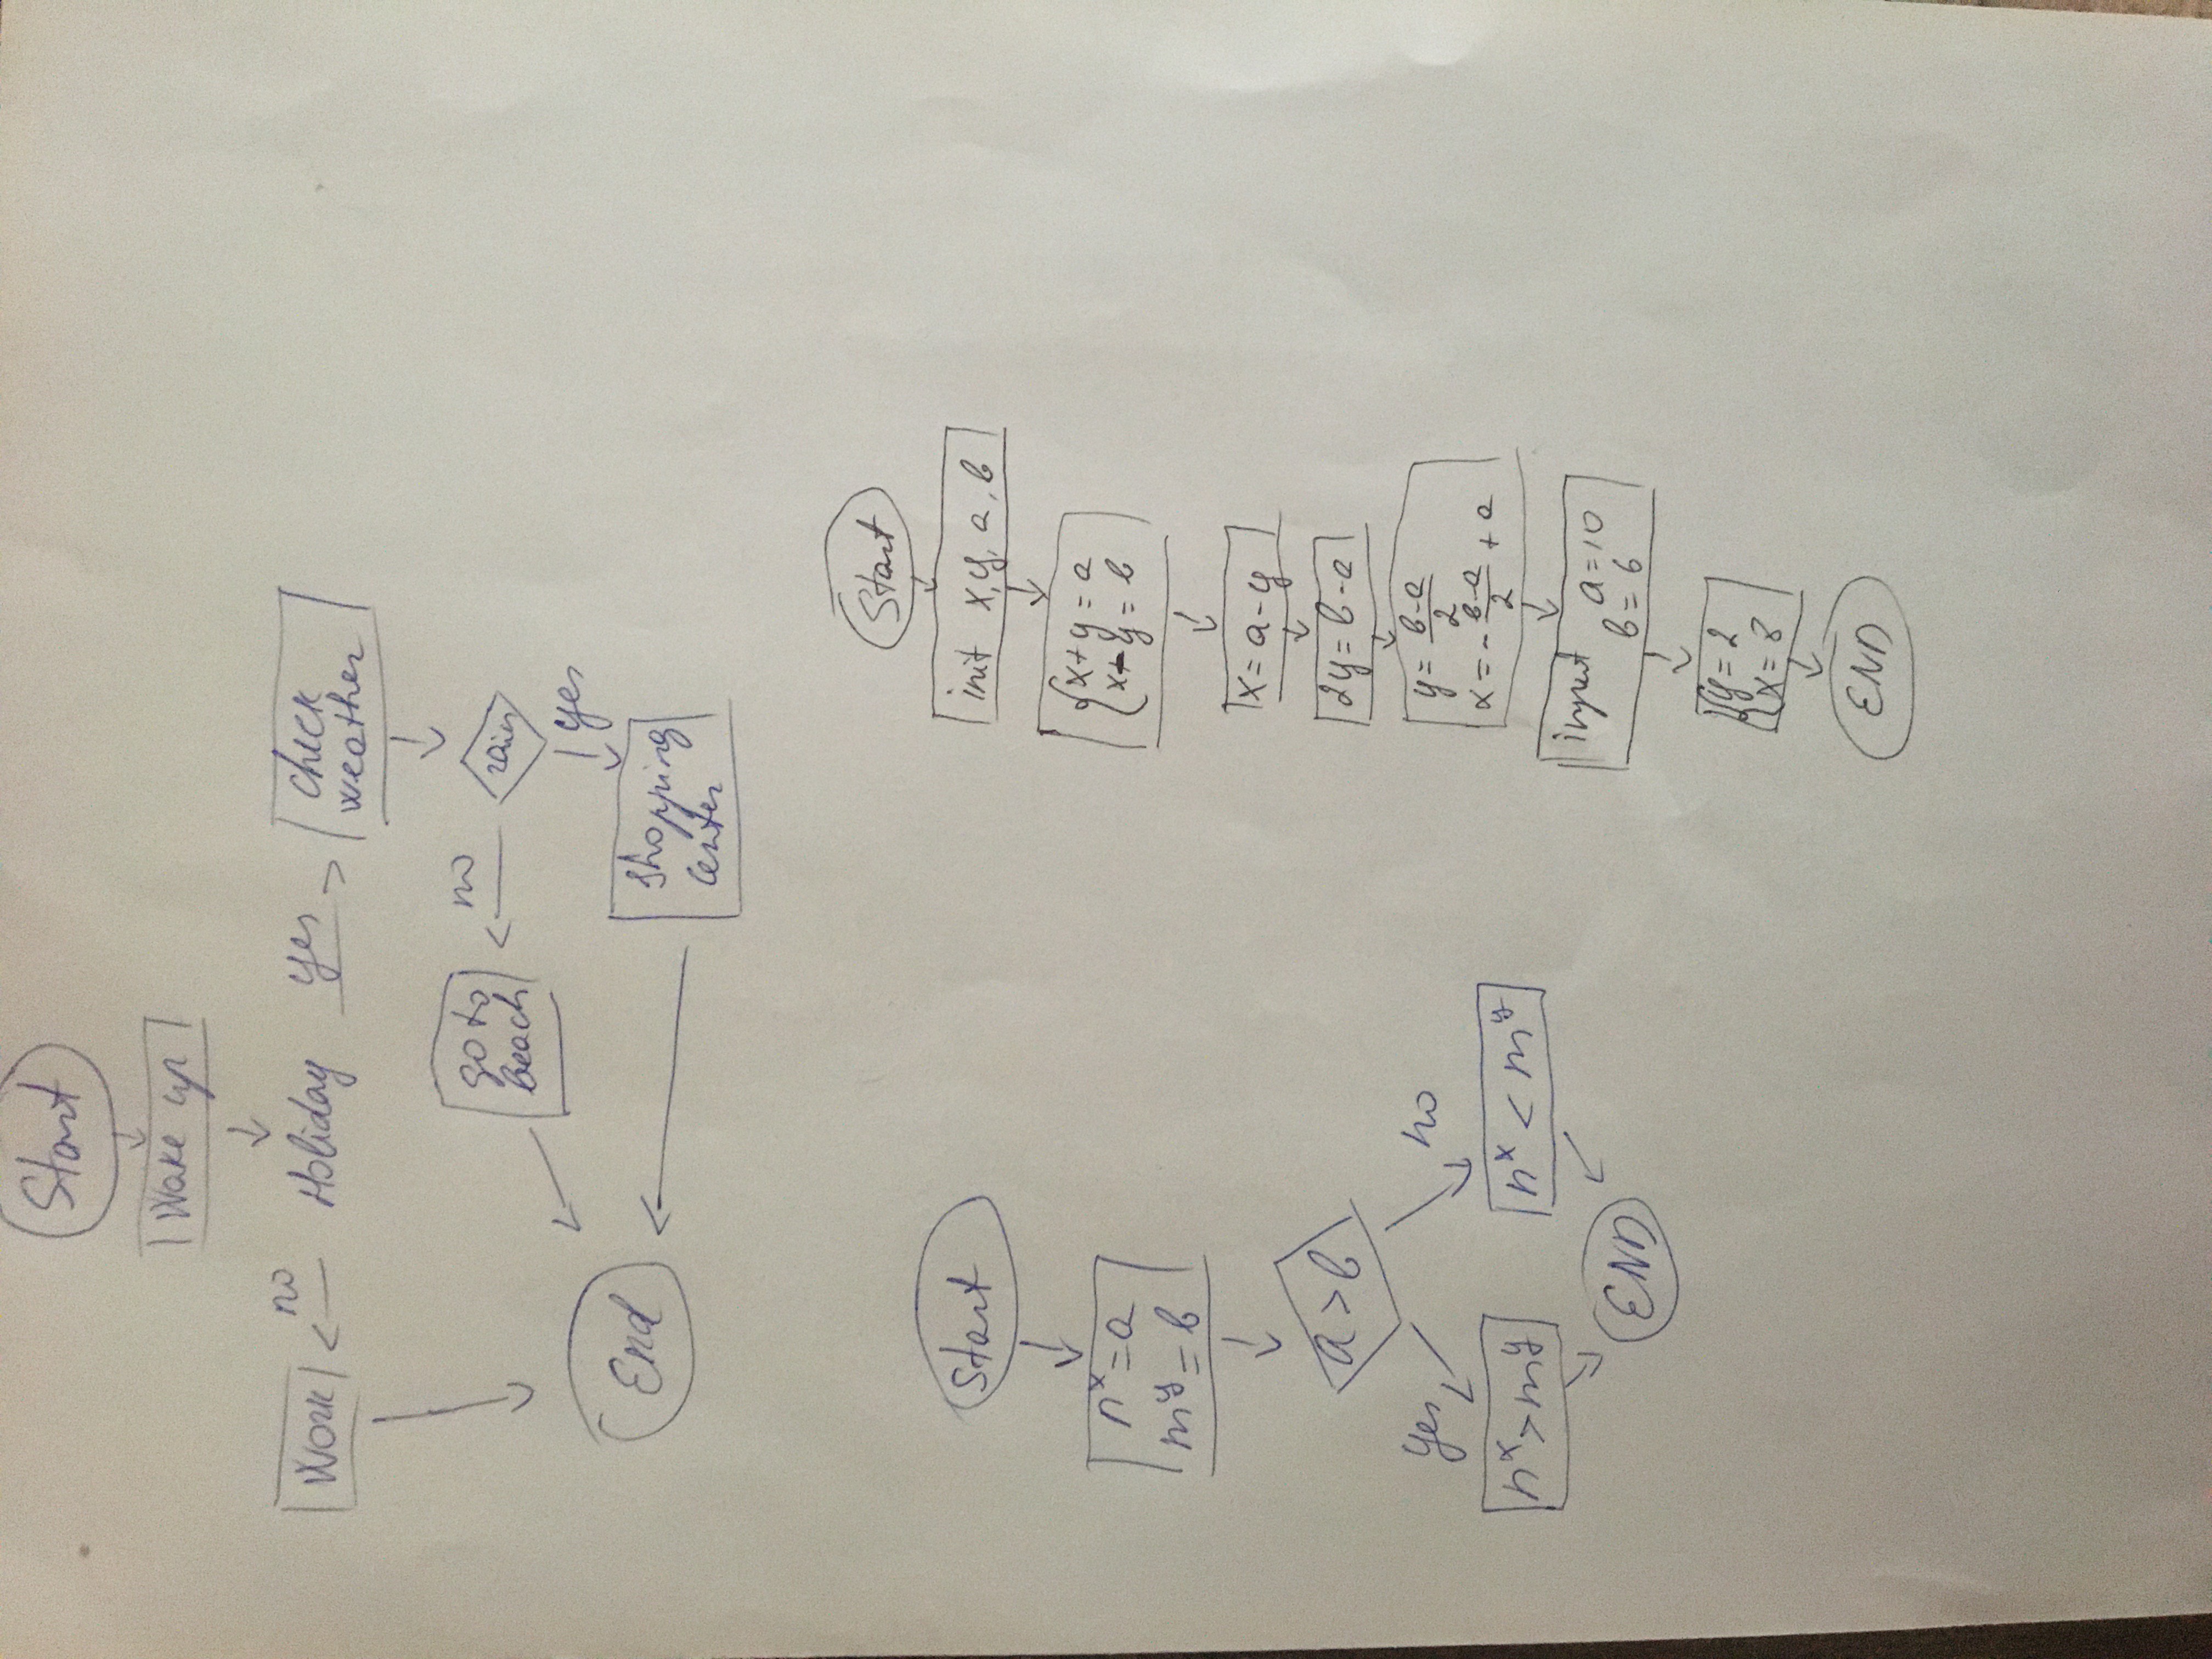 Start
Wake up
Work
no
Holiday
yes
check
weather
go to
beach
no
rain
yes
End
Shopping
center
Start
n^x=a
m^y=b
a>b
yes
no
n^x>m^y
n^x < m^y
END
Start
init x,y, a, b
x+y=a
x-y=b
x=a-y
2y=b-a
y=\frac{b-a}{2}
x=-\frac{b-a}{2}+a
input a=10
b=6
y=2
x=8
END